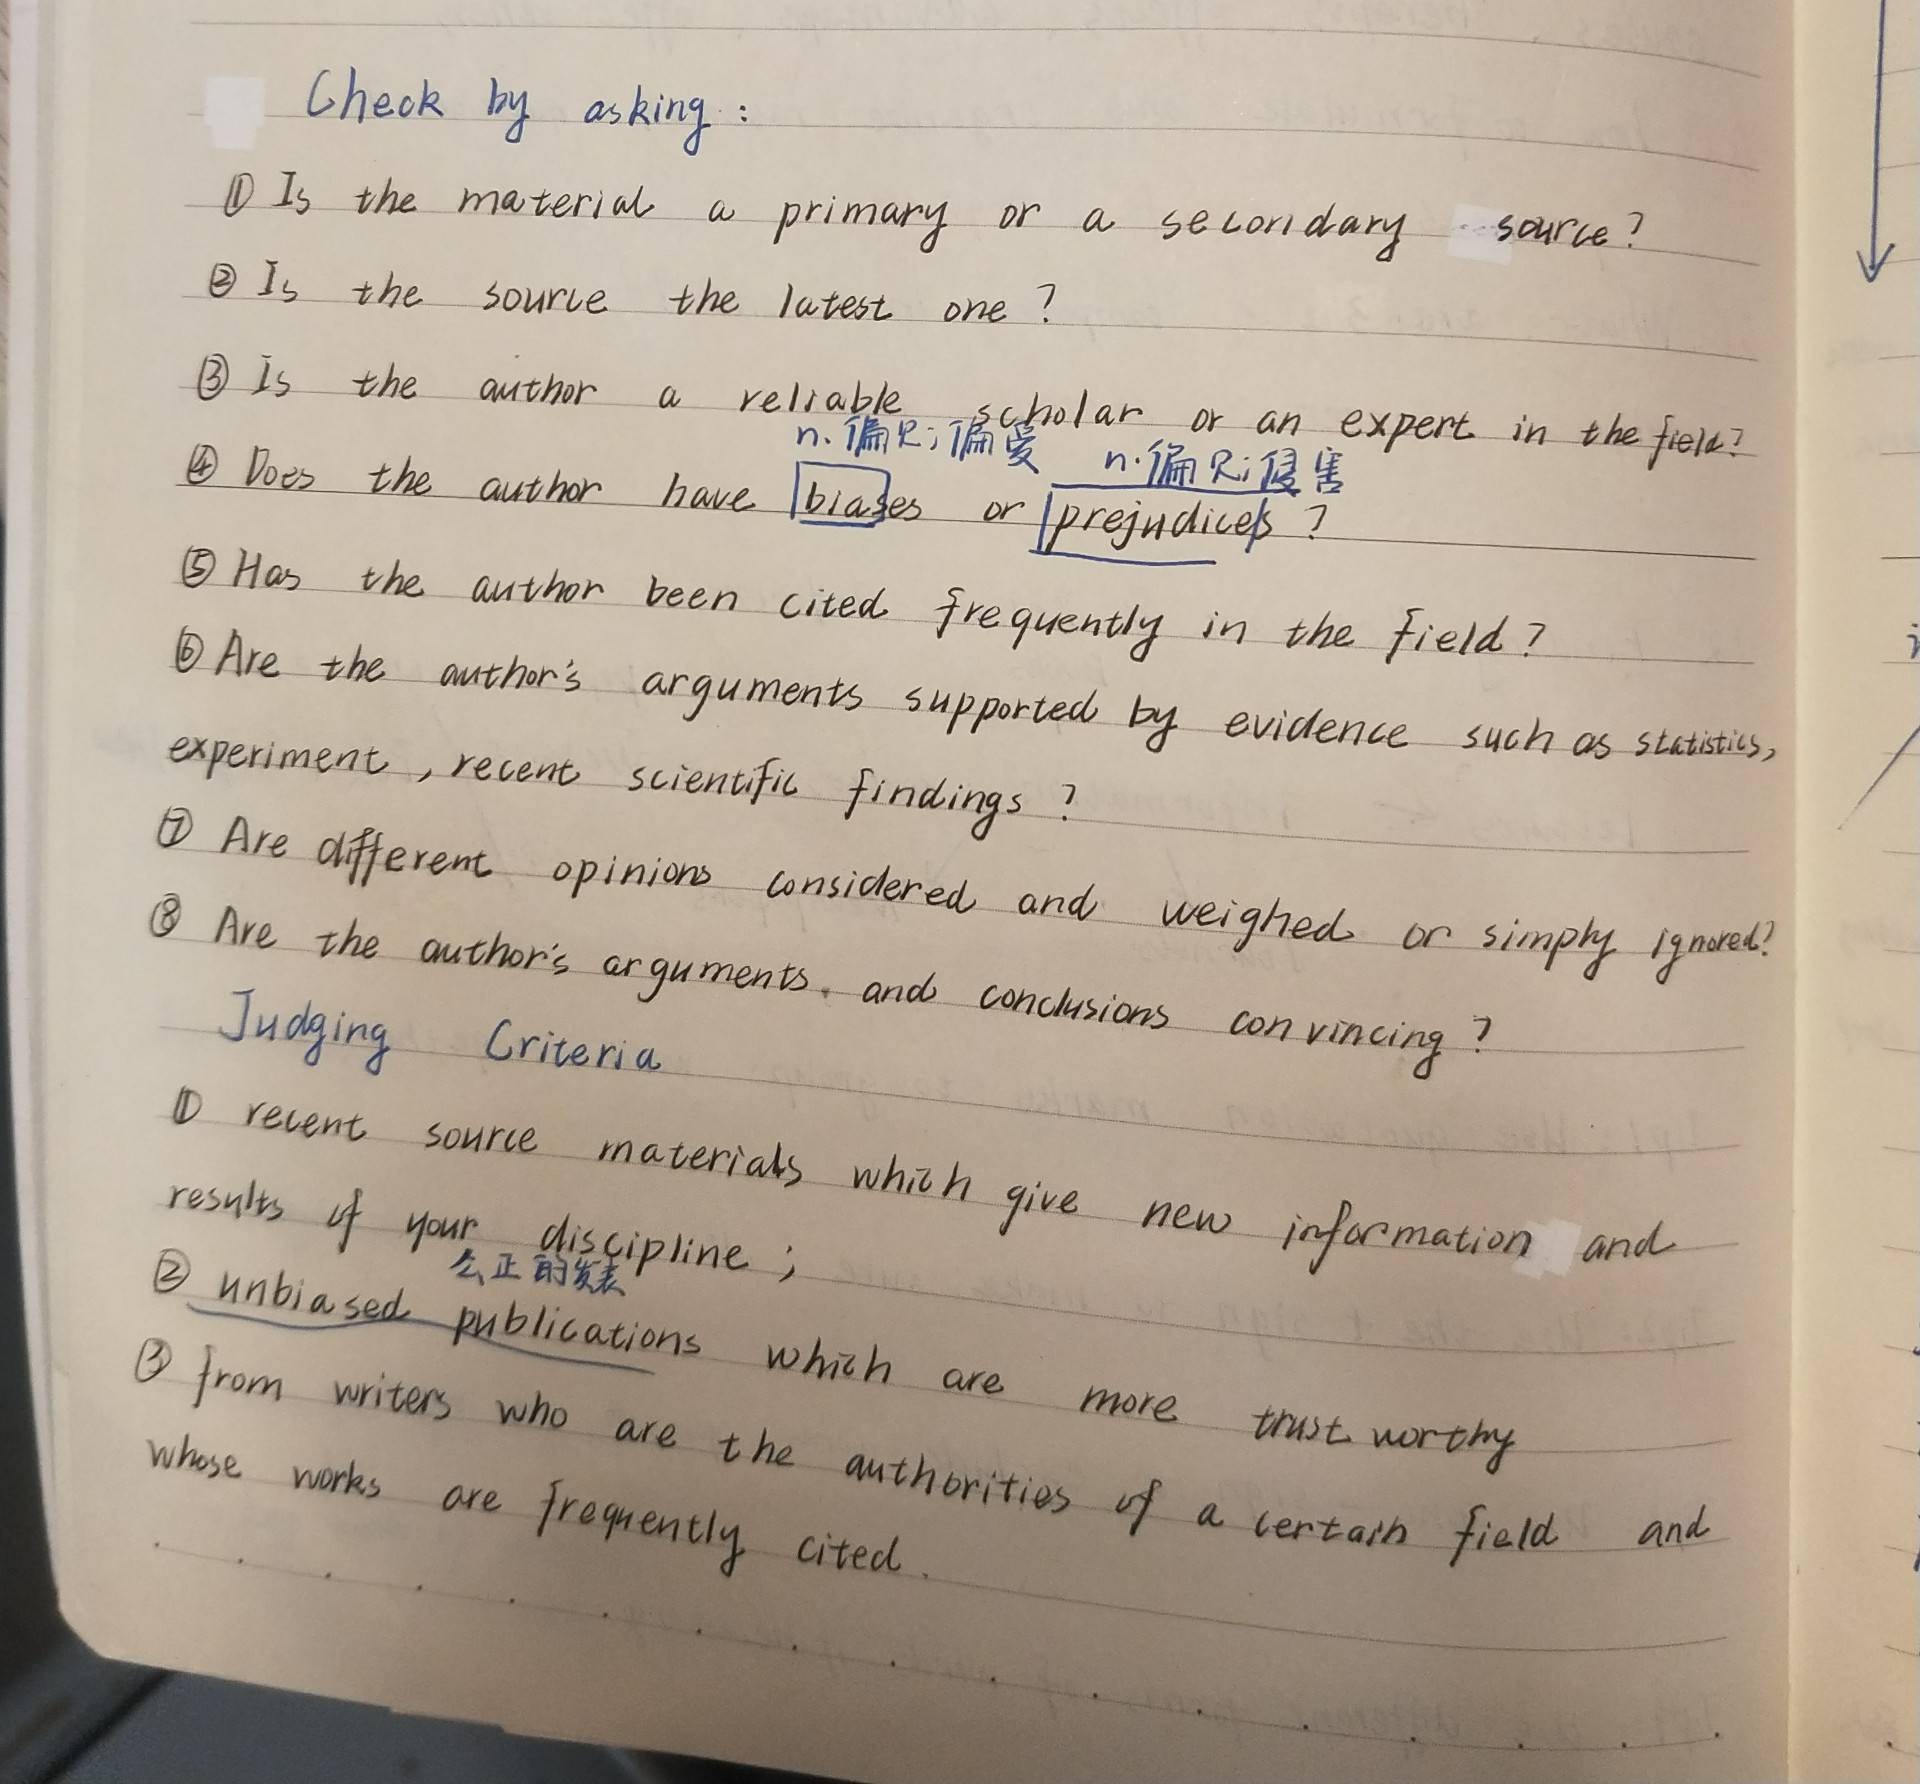 Check by asking:
① Is the material a primary or a secondary source?
② Is the source the latest one?
③ Is the author a reliable scholar or an expert in the field?
n. 偏见; 偏爱 n. 偏见; 侵害
④ Does the author have biases or prejudices?
⑤ Has the author been cited frequently in the field?
⑥ Are the author's arguments supported by evidence such as statistics,
experiment, recent scientific findings?
⑦ Are different opinions considered and weighed or simply ignored?
⑧ Are the author's arguments. and conclusions convincing?
Judging Criteria
① recent source materials which give new information and
results of your discipline;
公正的发表
② unbiased publications which are more trust worthy
③ from writers who are the authorities of a certain field and
whose works are frequently cited.